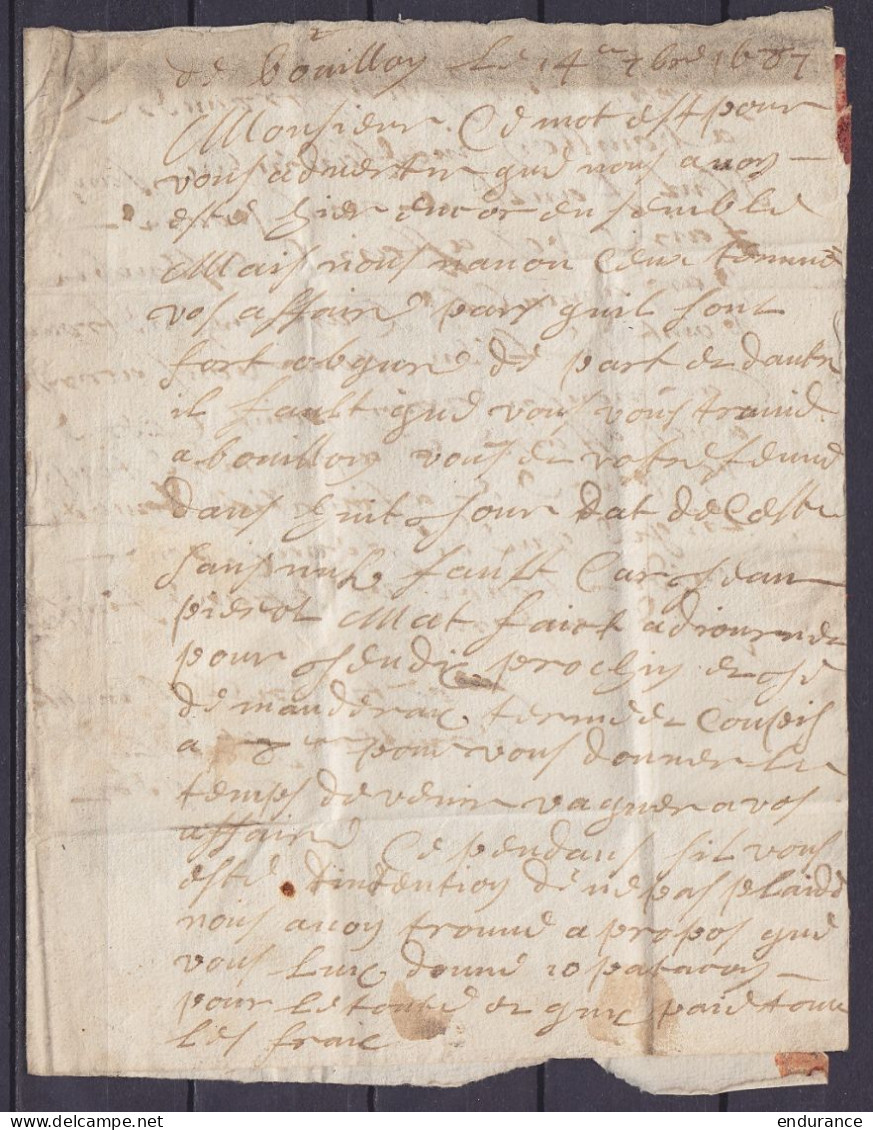 de bouillon Le 14e 7bre 1687
Monsieur Ce mot est pour
vous aduertir que nous auon
esté hier encor ensemble
Mais nous nauon
vos affaire pars quil sont
fort obqure de part et dautre
il fault que vous vous trouué
a bouillon vous et votre femme
dans huit Jour dat de Cest
sans nulle fault Car Jean
pierot Mat faict adiourner
pour Jeudÿ prochin et Je
demanderaÿ terme et Conseil
a pour vous donner le
temps de venir vaquer a vos
affaire Cependans sil vous
esté dintention de ne pas plaidé
nous auon trouué a propos que
vous luÿ donné 10 patacon
pour le toute et quÿ paie tout
les fraiс
endurance